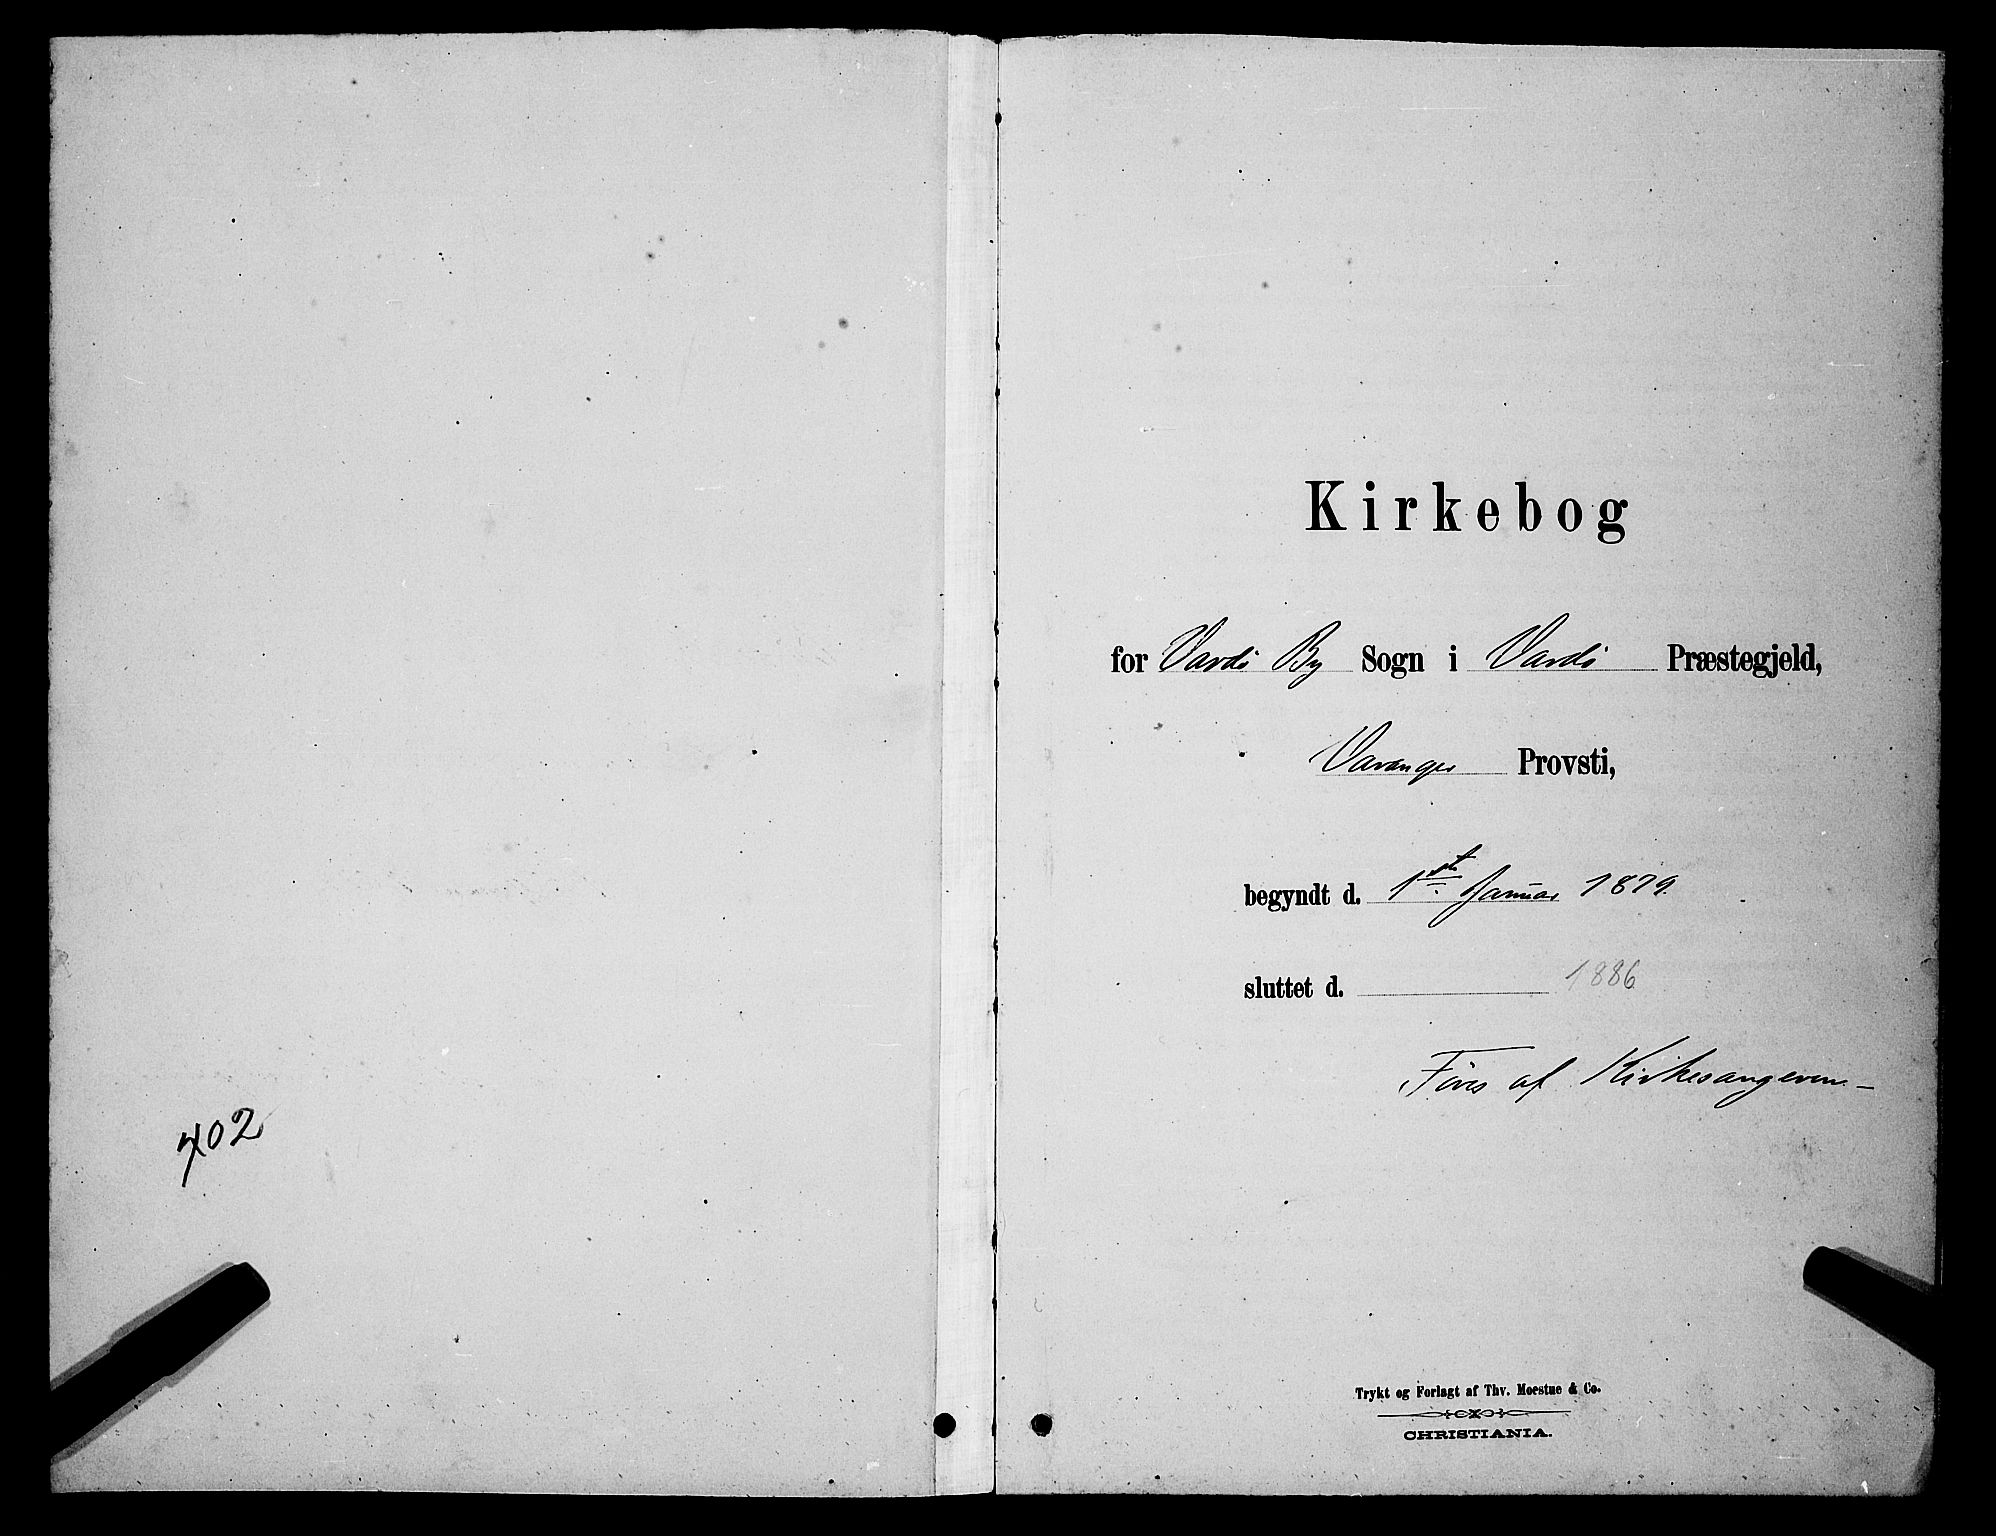 702
Kirkebog
for Vardö By Sogn i Vardö Præstegjeld,
Varanger Provsti,
begyndt d. 1ste Januar 1879.
sluttet d. 1886
Föres af Kirkesangeren.–
Trykt og Forlagt af Thv. Moestue & Co.
CHRISTIANIA.